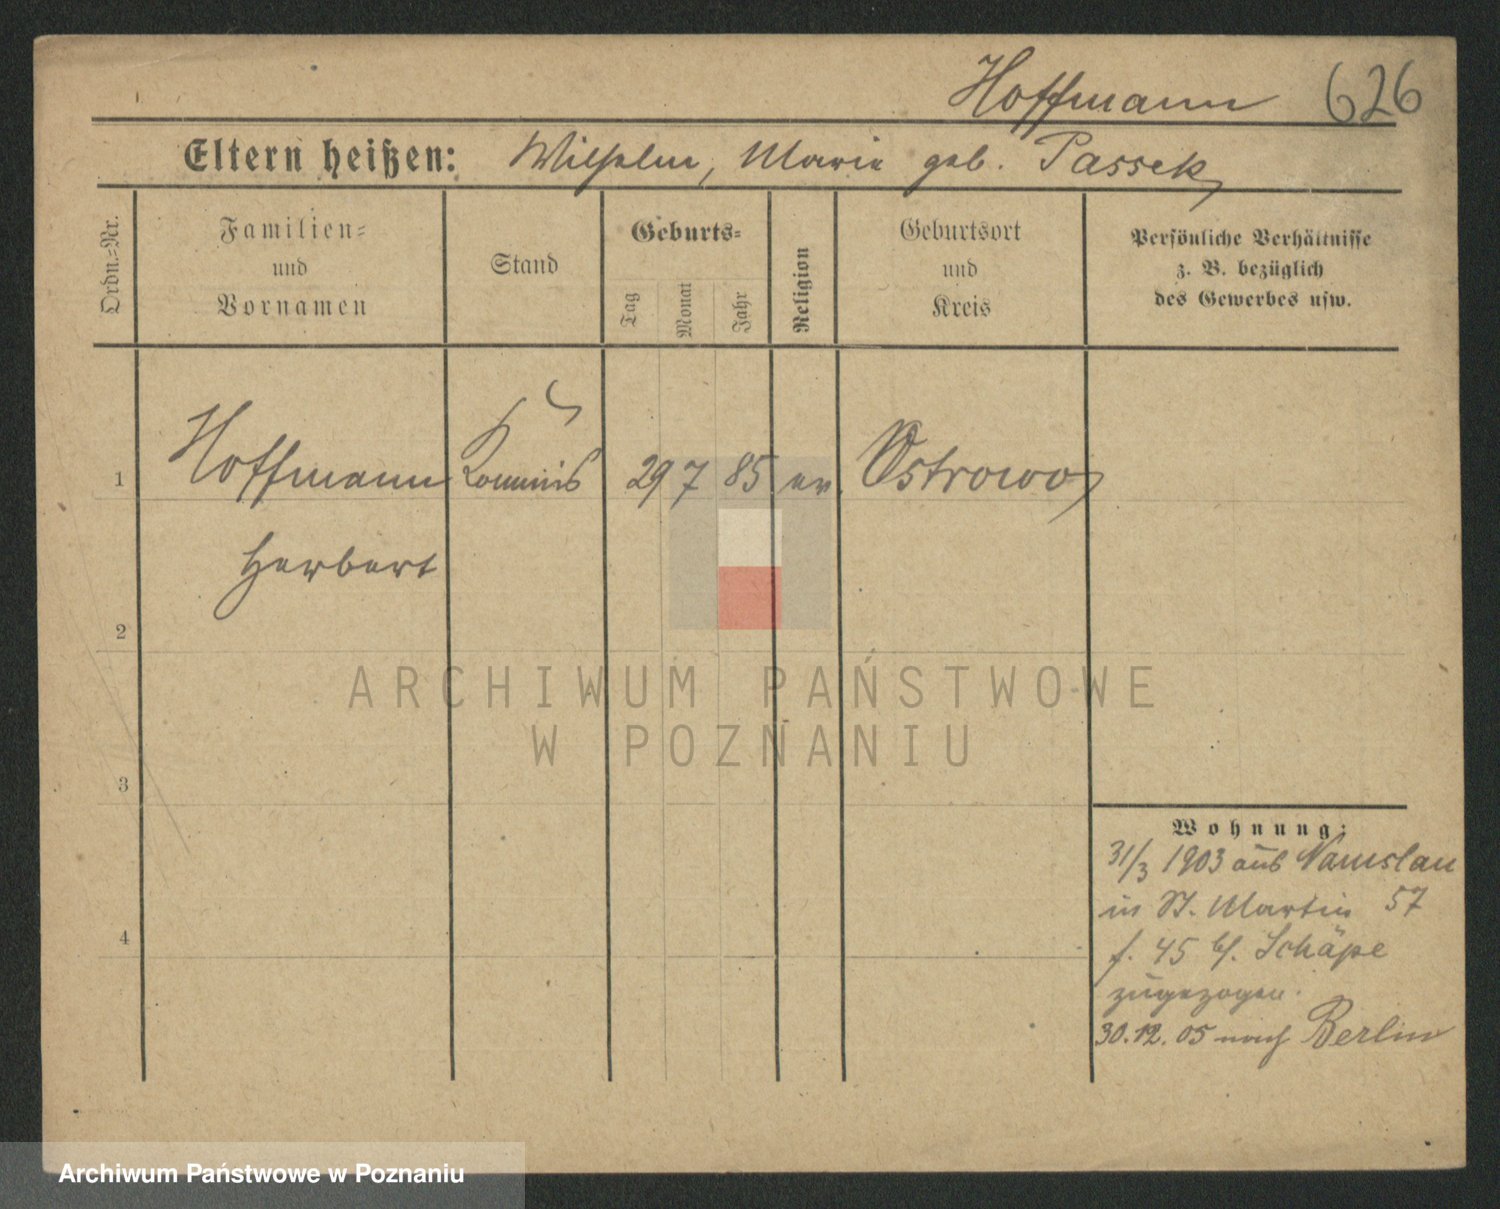 Hoffmann 626
Eltern heißen: Wilhelm, Marie geb. Passek
Ordn.=Nr.
Familien=
und
Vornamen
Stand
Geburts=
Tag
Monat
Jahr
Religion
Geburtsort
und
Kreis
Persönliche Verhältnisse
z. B. bezüglich
des Gewerbes usw.
1 Hoffmann Kommis 29 7 85 ev. Ostrowo
Herbert
2
ARCHIWUM PAŃSTWOWE
W POZNANIU
3
Wohnung:
31/3 1903 aus Namslau
in St. Martin 57
f. 45 b/. Schäpe
zugezogen.
4
30.12.05 nach Berlin
Archiwum Państwowe w Poznaniu